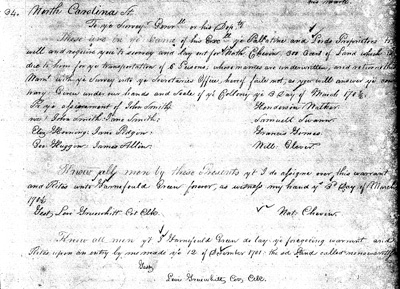 34. North Carolina St.
To ye Survey Genll or his Depty
These are in ye name of his Excy ye Palatine and Lords Proprietors to
will and require you to survey and lay out for Nath. Chevin 300 Acres of Land which
due to him for ye transportation of 6 Persons, whose names are underwritten and returne the
Warrt with ye Survey into ye Secretaries Office hereof faile not, as you will answer ye
Given under our hands and Seale of ye Collony ye 3 Day of March
To ye assignment of John Smith Henderson Walker
John Smith Jane Smith Samuell Swann
Eliz Jane Francis
Geo James Will Glover
Know all men by these Presents yt I do assigne over, this warrant
and Rites unto Garnefeuld Green forever, as witness my hand ye 3d Day of March
Test, Levi Truewhitt Cor Clk. Nat. Chevin.
Know all men yt I Garnefeuld Green do lay ye foregoing warrant and
Rites upon an entry by me made ye 12 of 1701 the sd Land called
Test,
Levi Truewhitt, Cor, Clk.